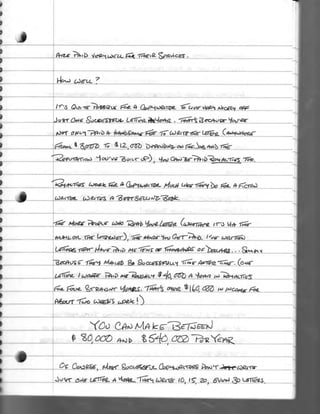 ARE PAID VERY WELL FOR THEIR SERVICES.
HOW WELL?
IT'S QUITE POSSIBLE FOR A COPYWRITER TO LIVE VERY NICELY OFF
JUST ONE SUCCESSFUL LETTER A YEAR. THAT'S BECAUSE YOU'RE
NOT ONLY PAID A HANDSOME FEE TO WRITE THE LETTER (ANYWHERE
FROM $8,000 TO $12,000 DEPENDING ON THE JOB AND THE
REPUTATION YOU'VE BUILT UP), YOU CAN BE PAID ROYALTIES TOO.
ROYALTIES WORK FOR A COPYWRITER MUCH LIKE THEY DO FOR A FICTION
WRITER WHO WRITES A BESTSELLING BOOK.
THE MORE PEOPLE WHO READ YOUR LETTER (WHETHER IT'S VIA THE
MAIL OR THE INTERNET), THE MORE YOU GET PAID. I'VE WRITTEN
LETTERS THAT HAVE PAID ME TENS OF THOUSANDS OF DOLLARS... SIMPLY
BECAUSE THEY MAILED SO SUCCESSFULLY TIME AFTER TIME. (ONE
LETTER I WROTE PAID ME ROUGHLY $40,000 A YEAR IN ROYALTIES
FOR FOUR STRAIGHT YEARS. THAT'S OVER $160,000 IN INCOME FOR
ABOUT TWO WEEKS WORK!)
YOU CAN MAKE BETWEEN
$80,000 AND $540,000 PER YEAR
OF COURSE, MOST SUCCESSFUL COPYWRITERS DON'T WRITE
JUST ONE LETTER A YEAR. THEY WRITE 10, 15, 20, EVEN 30 LETTERS.